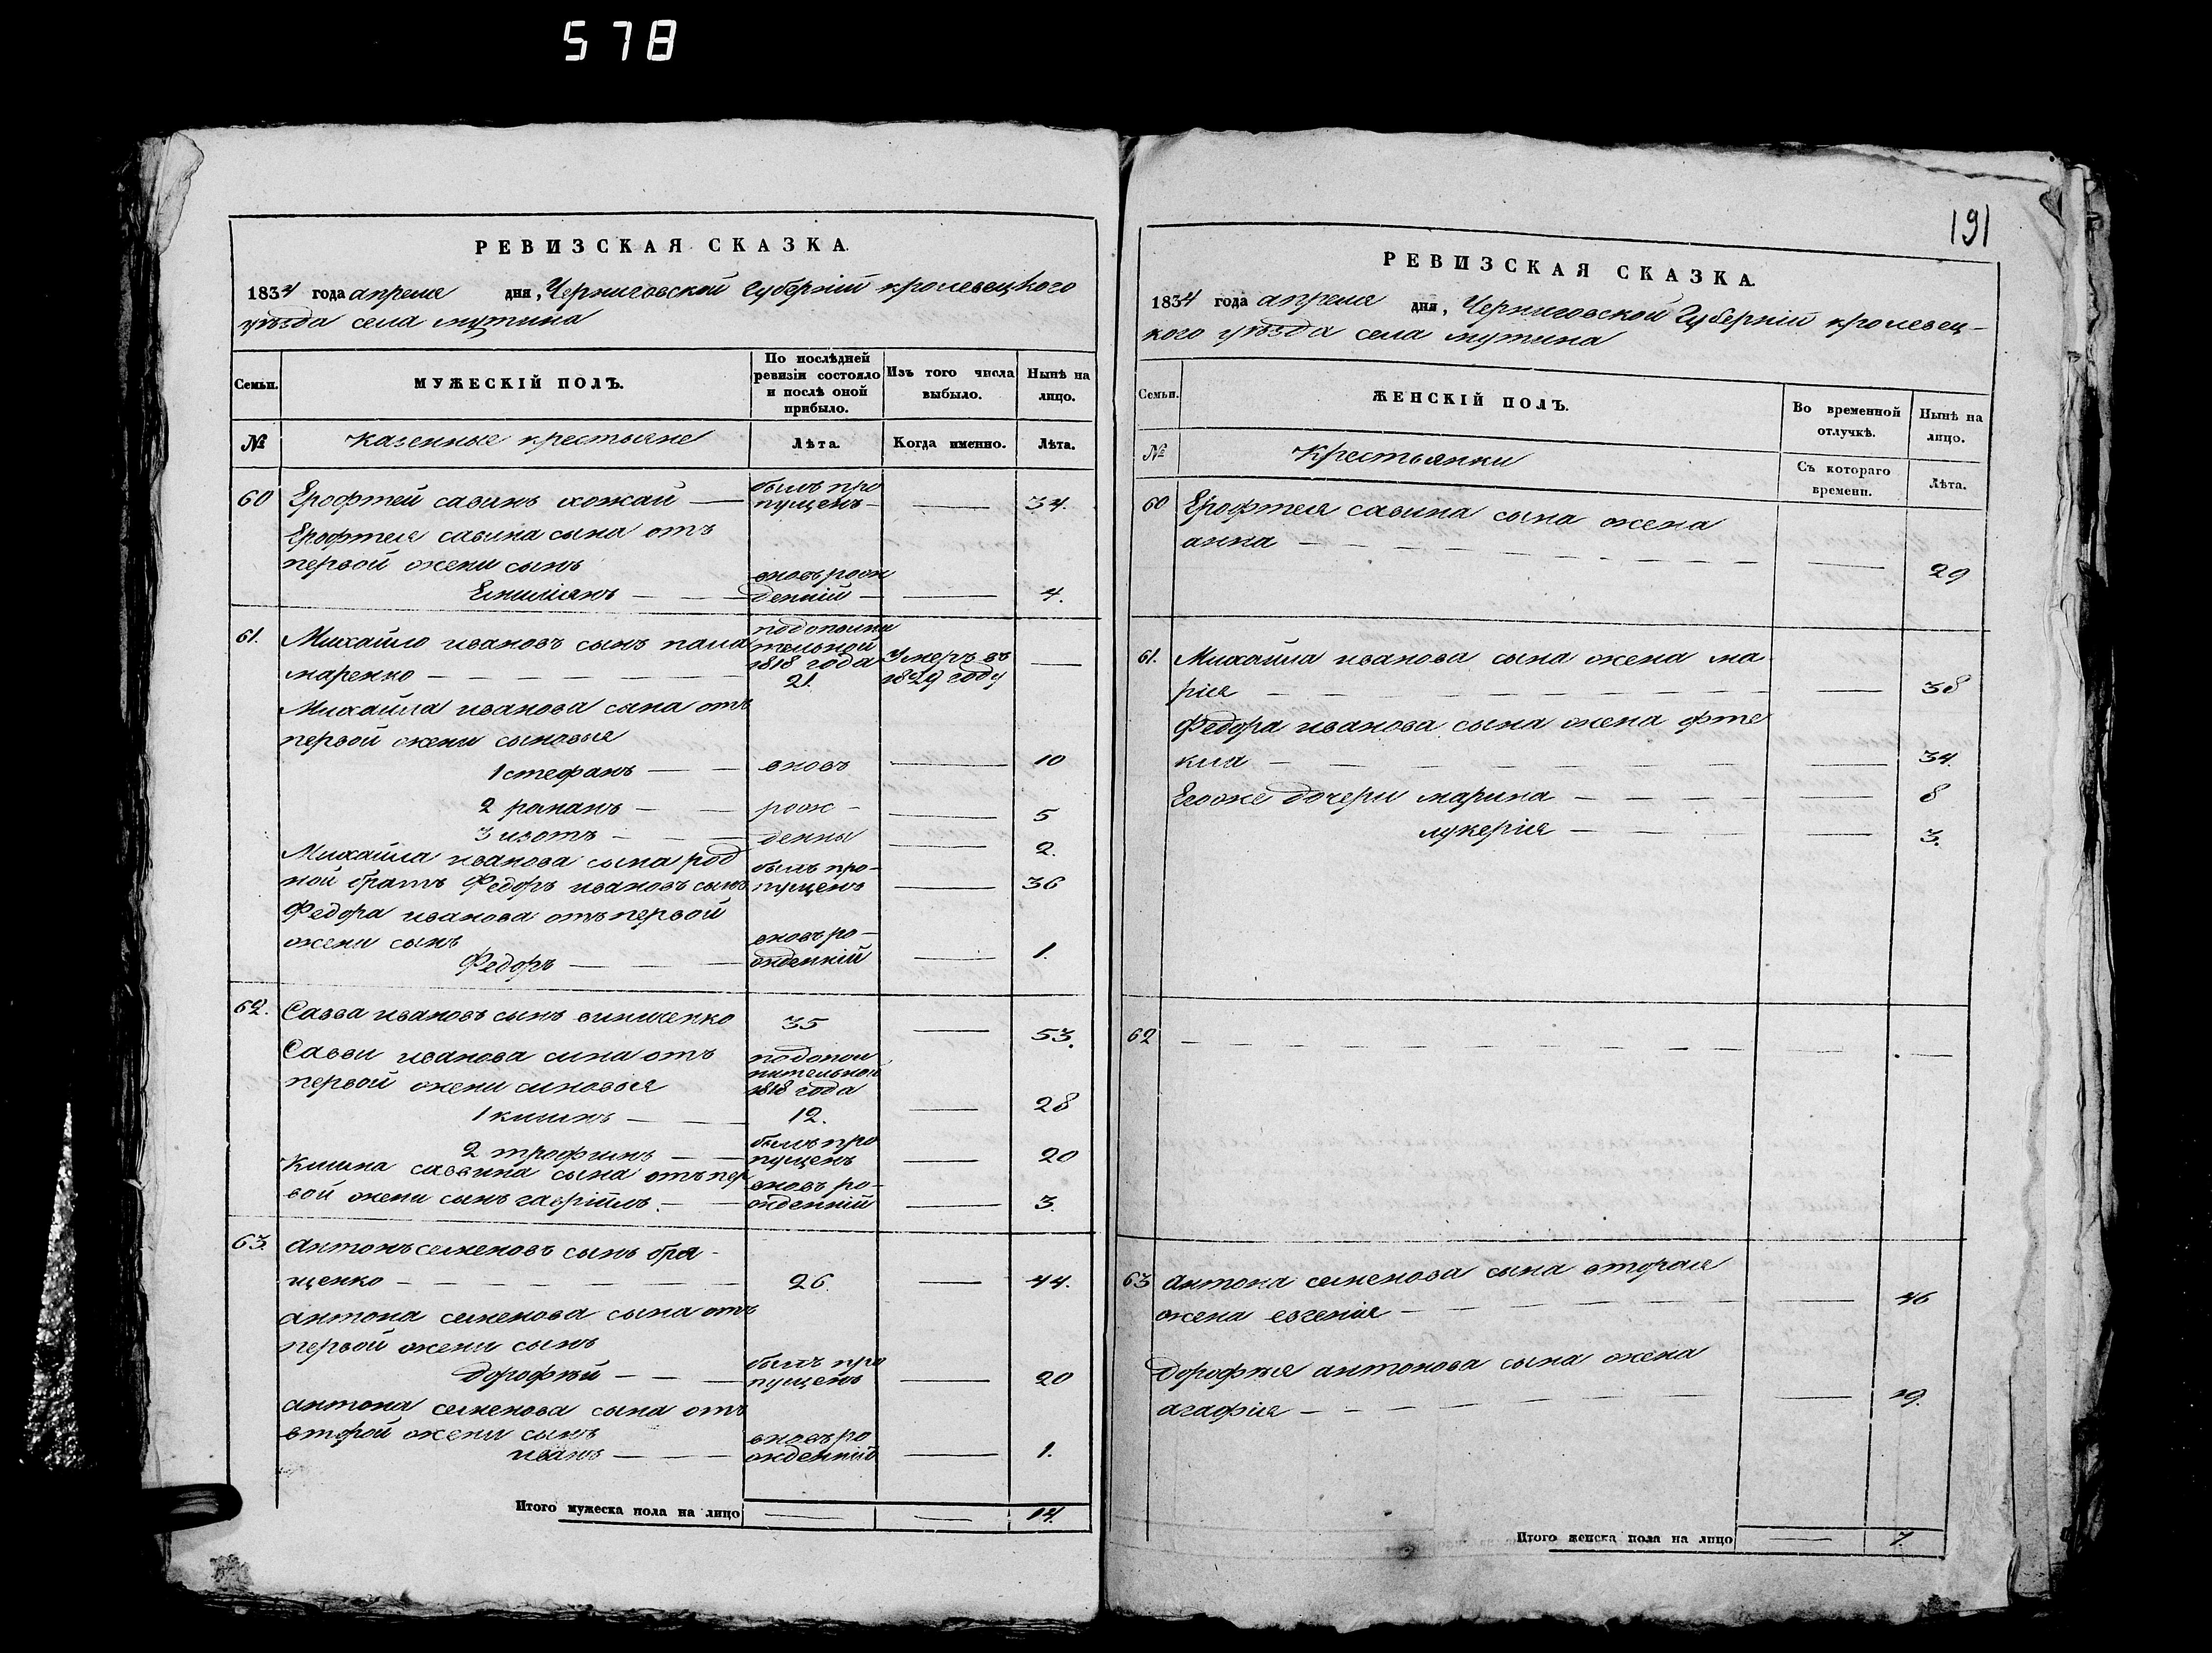 578
РЕВИЗСКАЯ СКАЗКА.
1834 года апреля дня, Черниговской Губерніи кролевецкого
уѣзда села мутина
Семьи.
МУЖЕСКІЙ ПОЛЪ.
По послѣдней ревизіи состояло и послѣ оной прибыло.
Изъ того числа выбыло.
Нынѣ на лицо.
№
казенные крестьяне
Лѣта.
Когда именно.
Лѣта.
60 Ерофтей савинъ хожай — былъ про
пущенъ — — 34.
Ерофтея савина сына отъ
первой жени сынъ
вновь рож
Емилианъ — — — денній — — 4.
61. Михайло ивановъ сынъ пала
маренко — — — — —
подополни
тельной
1818 года
21.
Умеръ въ
1829 году
—
Михайла иванова сына отъ
первой жени сыновья
1 стефанъ — — вновь — 10
2 романъ — — рож — — 5
3 изотъ — — — денны — 2.
Михайла иванова сына род
ной братъ Федоръ ивановъ сынъ
былъ про-
пущенъ — 36
Федора иванова отъ первой
жени сынъ
Федоръ — — —
вновь ро-
жденній — 1.
62. Савва ивановъ сынъ виниченко 35 — 53.
Савви иванова сина отъ
первой жени синовья
подопол
нительной
1818 года
1 климъ — — 12. — 28
2 трофимъ — —
былъ про
пущенъ — 20
Клима саввина сына отъ пер
вой жени сынъ гавріилъ. — —
вновь ро-
жденній — 3.
63. Антонъ семеновъ сынъ бря-
щенко — — — — — — 26. — 44.
Антона семенова сына отъ
первой жени сынъ
Дорофѣй — — —
былъ про
пущенъ — 20
Антона семенова сына отъ
второй жени сынъ
иванъ — — —
вновь ро
жденній — 1.
Итого мужеска пола на лицо — — 14.
191
РЕВИЗСКАЯ СКАЗКА.
1834 года апреля дня, Черниговской Губерніи кролевец-
кого уѣзда села мутина
Семьи.
ЖЕНСКІЙ ПОЛЪ.
Во временной отлучкѣ.
Нынѣ на лицо.
№
Крестьянки
Съ котораго времени.
Лѣта.
60 Ерофтея савина сына жена
анна — — — — — — — — 29
61. Михайла иванова сына жена ма-
рія — — — — — — — — 38
Федора иванова сына жена фте
кла — — — — — — — 34.
Егоже дочери марина — — — — 8
лукерія — — — — 3.
62 — — — — — — — — — —
63 Антона семенова сына вторая
жена евгенія — — — — — — 46
Дорофѣя антонова сына жена
агафія — — — — — — — 19.
Итого женска пола на лицо — 7.